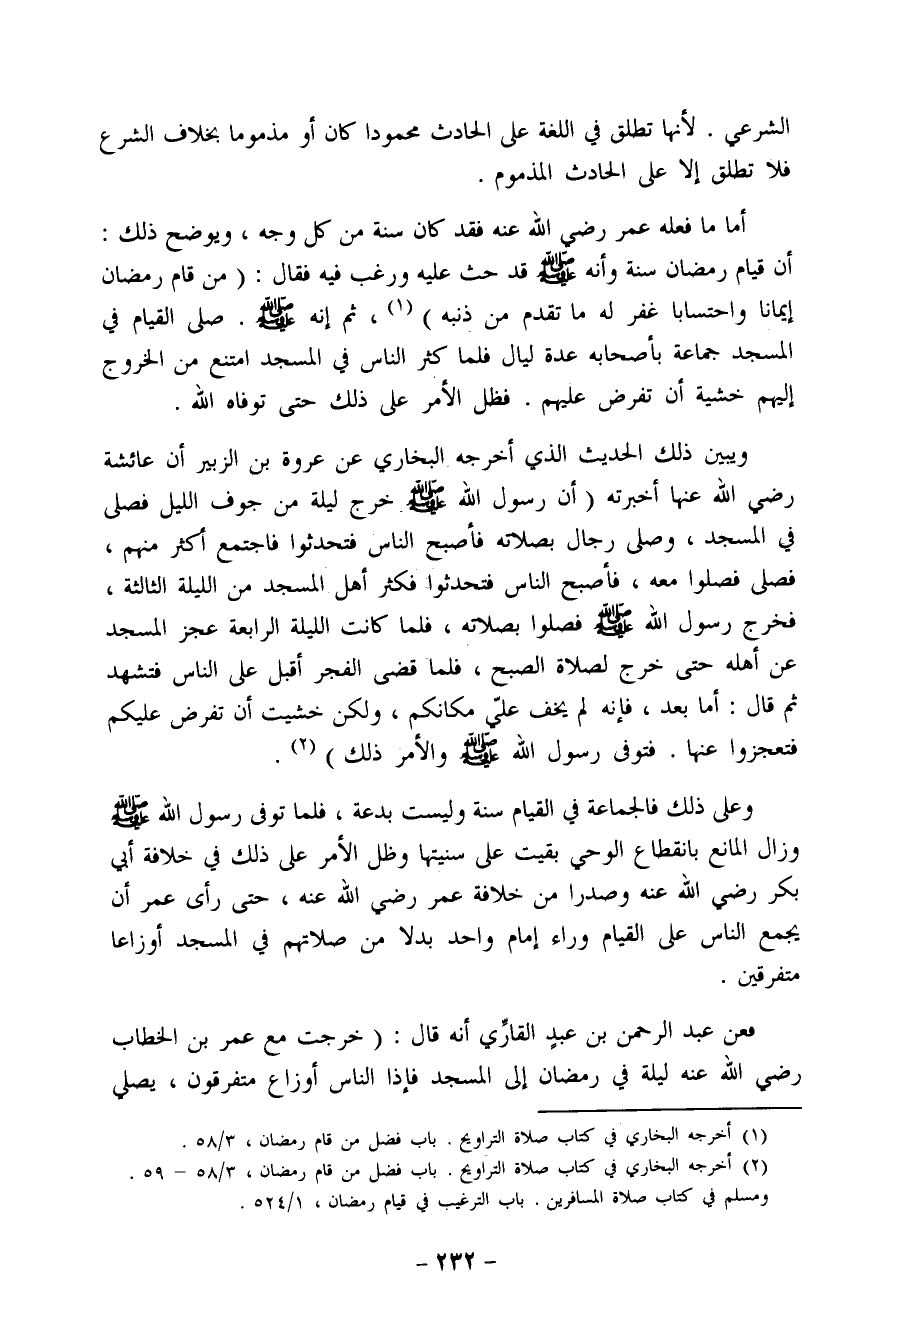 الشرعي . لأنها تطلق في اللغة على الحادث محمودا كان أو مذموما بخلاف الشرع
فلا تطلق إلا على الحادث المذموم .
أما ما فعله عمر رضي الله عنه فقد كان سنة من كل وجه ، ويوضح ذلك :
أن قيام رمضان سنة وأنه ﷺ قد حث عليه ورغب فيه فقال : ( من قام رمضان
إيمانا واحتسابا غفر له ما تقدم من ذنبه ) (١) ، ثم إنه ﷺ . صلى القيام في
المسجد جماعة بأصحابه عدة ليال فلما كثر الناس في المسجد امتنع من الخروج
إليهم خشية أن تفرض عليهم . فظل الأمر على ذلك حتى توفاه الله .
ويبين ذلك الحديث الذي أخرجه البخاري عن عروة بن الزبير أن عائشة
رضي الله عنها أخبرته ( أن رسول الله ﷺ خرج ليلة من جوف الليل فصلى
في المسجد ، وصلى رجال بصلاته فأصبح الناس فتحدثوا فاجتمع أكثر منهم ،
فصلى فصلوا معه ، فأصبح الناس فتحدثوا فكثر أهل المسجد من الليلة الثالثة ،
فخرج رسول الله ﷺ فصلوا بصلاته ، فلما كانت الليلة الرابعة عجز المسجد
عن أهله حتى خرج لصلاة الصبح ، فلما قضى الفجر أقبل على الناس فتشهد
ثم قال : أما بعد ، فإنه لم يخف عليّ مكانكم ، ولكن خشيت أن تفرض عليكم
فتعجزوا عنها . فتوفى رسول الله ﷺ والأمر ذلك ) (٢) .
وعلى ذلك فالجماعة في القيام سنة وليست بدعة ، فلما توفى رسول الله ﷺ
وزال المانع بانقطاع الوحي بقيت على سنيتها وظل الأمر على ذلك في خلافة أبي
بكر رضي الله عنه وصدرا من خلافة عمر رضي الله عنه ، حتى رأى عمر أن
يجمع الناس على القيام وراء إمام واحد بدلا من صلاتهم في المسجد أوزاعا
متفرقين .
فعن عبد الرحمن بن عبدٍ القاريِّ أنه قال : ( خرجت مع عمر بن الخطاب
رضي الله عنه ليلة في رمضان إلى المسجد فإذا الناس أوزاع متفرقون ، يصلي
(١) أخرجه البخاري في كتاب صلاة التراويح . باب فضل من قام رمضان ، ٥٨/٣ .
(٢) أخرجه البخاري في كتاب صلاة التراويح . باب فضل من قام رمضان ، ٥٨/٣ – ٥٩ .
ومسلم في كتاب صلاة المسافرين . باب الترغيب في قيام رمضان ، ٥٢٤/١ .
– ٢٣٢ –